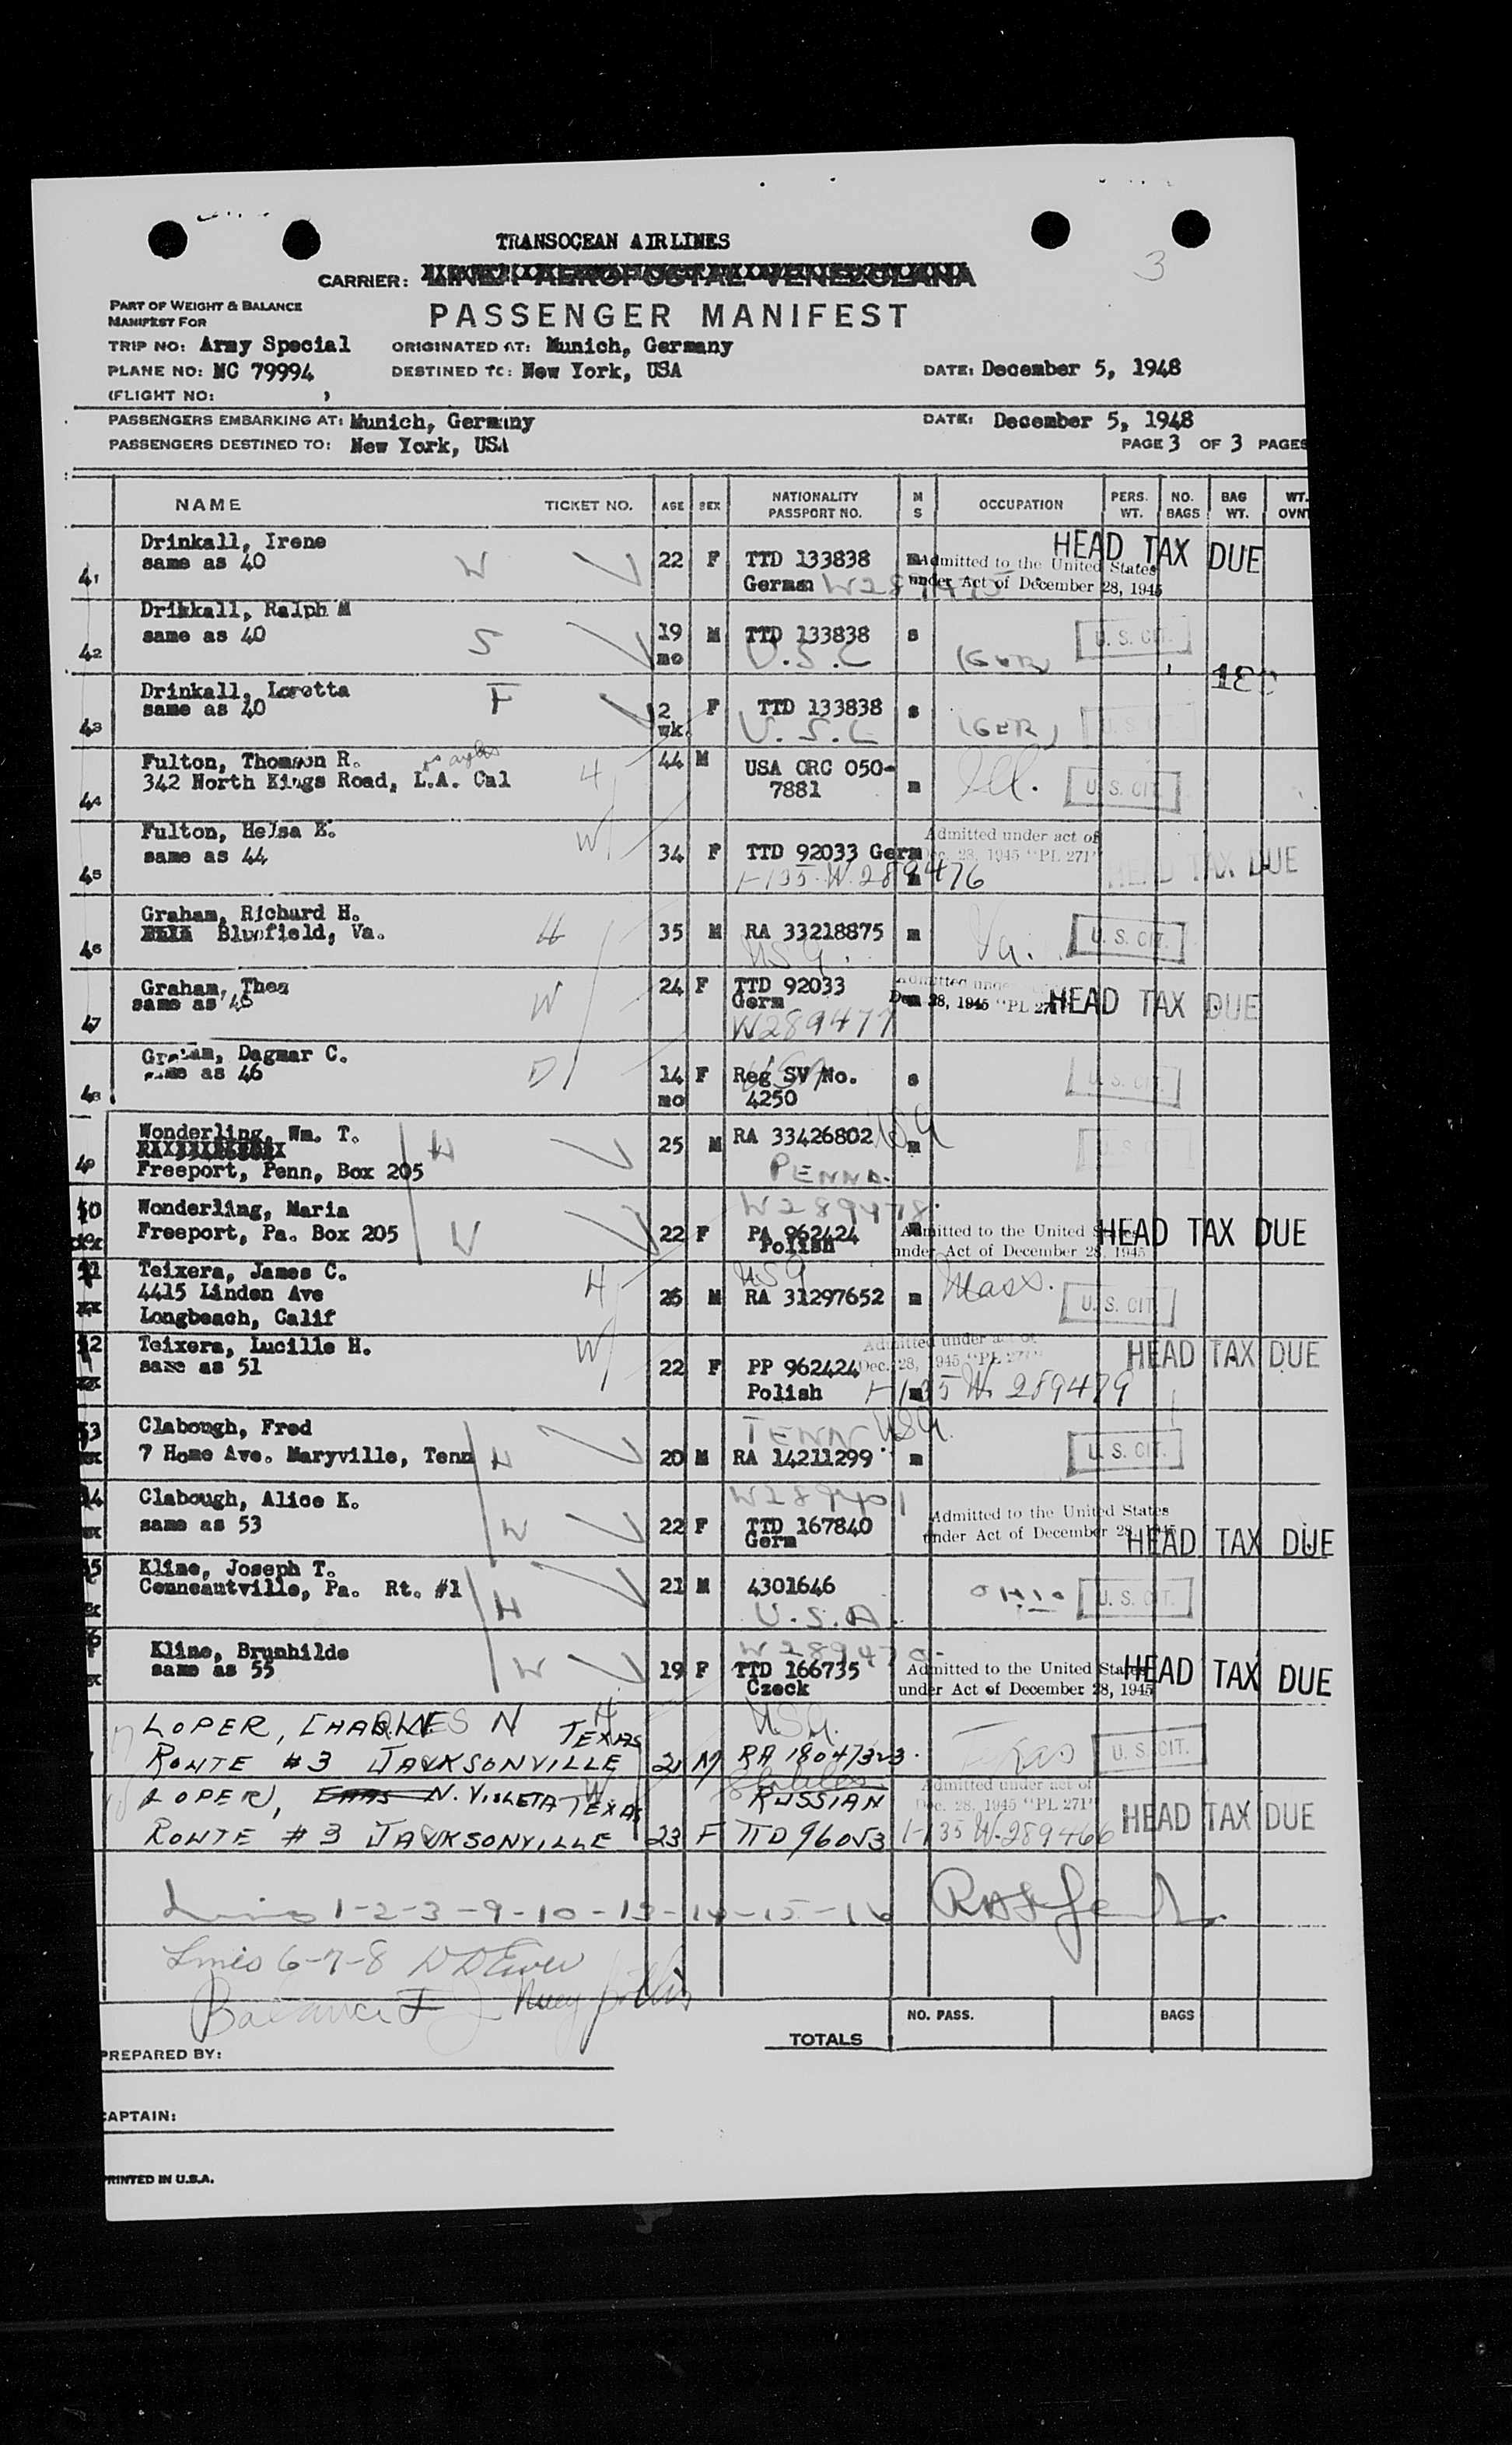 3
TRANSOCEAN AIRLINES
CARRIER: LINEA AEROPOSTAL VENEZOLANA
PART OF WEIGHT & BALANCE
MANIFEST FOR
PASSENGER MANIFEST
TRIP NO: Army Special ORIGINATED AT: Munich, Germany
PLANE NO: NC 79994 DESTINED TO: New York, USA DATE: December 5, 1948
(FLIGHT NO: )
PASSENGERS EMBARKING AT: Munich, Germany DATE: December 5, 1948
PASSENGERS DESTINED TO: New York, USA PAGE 3 OF 3 PAGES
NAME TICKET NO. AGE SEX NATIONALITY PASSPORT NO. M S OCCUPATION PERS. WT. NO. BAGS BAG WT. WT. OVNT
Drinkall, Irene HEAD TAX DUE
41 same as 40 W 22 F TTD 133838 m Admitted to the United States
German under Act of December 28, 1945
Drinkall, Ralph M
42 same as 40 S 19 mo M TTD 133838 s U. S. CIT.
U.S.C (GER)
Drinkall, Loretta F
43 same as 40 2 wk. F TTD 133838 s U. S.
U.S.C (GER)
Fulton, Thomson R. 44 M USA ORC 050-
44 342 North Kings Road, L.A. Cal H 7881 m Ill. U. S. CIT.
Fulton, Helsa E. W Admitted under act of
45 same as 44 34 F TTD 92033 Germ Dec. 28, 1945 "PL 271" HEAD TAX DUE
I-135 W 289476
Graham, Richard H.
46 Bluefield, Va. H 35 M RA 33218875 m Va. U. S. CIT.
USA.
Graham, Thea 24 F TTD 92033 Admitted under
47 same as 46 W Germ Dec 28, 1945 "PL 271" HEAD TAX DUE
W289477
Graham, Dagmar C. USA
48 same as 46 D 14 mo F Reg SV No. s U. S. CIT.
4250
Wonderling, Wm. T. H 25 M RA 33426802 USA m U. S.
Freeport, Penn, Box 205 PENNA.
50 Wonderling, Maria W289478
Freeport, Pa. Box 205 W 22 F PA 962424 Admitted to the United States HEAD TAX DUE
Polish under Act of December 28, 1945
51 Teixera, James C. H USA Mass.
4415 Linden Ave 26 M RA 31297652 m U. S. CIT.
Longbeach, Calif
52 Teixera, Lucille H. W Admitted under act of HEAD TAX DUE
same as 51 22 F PP 962424 Dec. 28, 1945 "PL 271"
Polish I-135 W. 289479
53 Clabough, Fred TENN USA.
7 Home Ave. Maryville, Tenn H 20 M RA 14211299 m U. S. CIT.
54 Clabough, Alice K. Admitted to the United States
same as 53 W 22 F TTD 167840 under Act of December 28, 1945 HEAD TAX DUE
Germ
55 Kline, Joseph T.
Conneautville, Pa. Rt. #1 H 21 M 4301646 OHIO U. S. CIT.
U.S.A.
56 Kline, Brunhilde
same as 55 W 19 F TTD 166735 Admitted to the United States HEAD TAX DUE
Czeck under Act of December 28, 1945
LOPER, CHARLES N TEXAS H USA.
ROUTE #3 JACKSONVILLE 21 M RA 18047323. Texas U. S. CIT.
LOPER, N. VIOLETA TEXAS W RUSSIAN Admitted under act of
Dec. 28, 1945 "PL 271" HEAD TAX DUE
ROUTE #3 JACKSONVILLE 23 F TTD 96053 I-135 W-289466
Lines 1-2-3-9-10-13-14-15-16
Lines 6-7-8
Balance
NO. PASS. BAGS
TOTALS
PREPARED BY:
CAPTAIN:
PRINTED IN U.S.A.